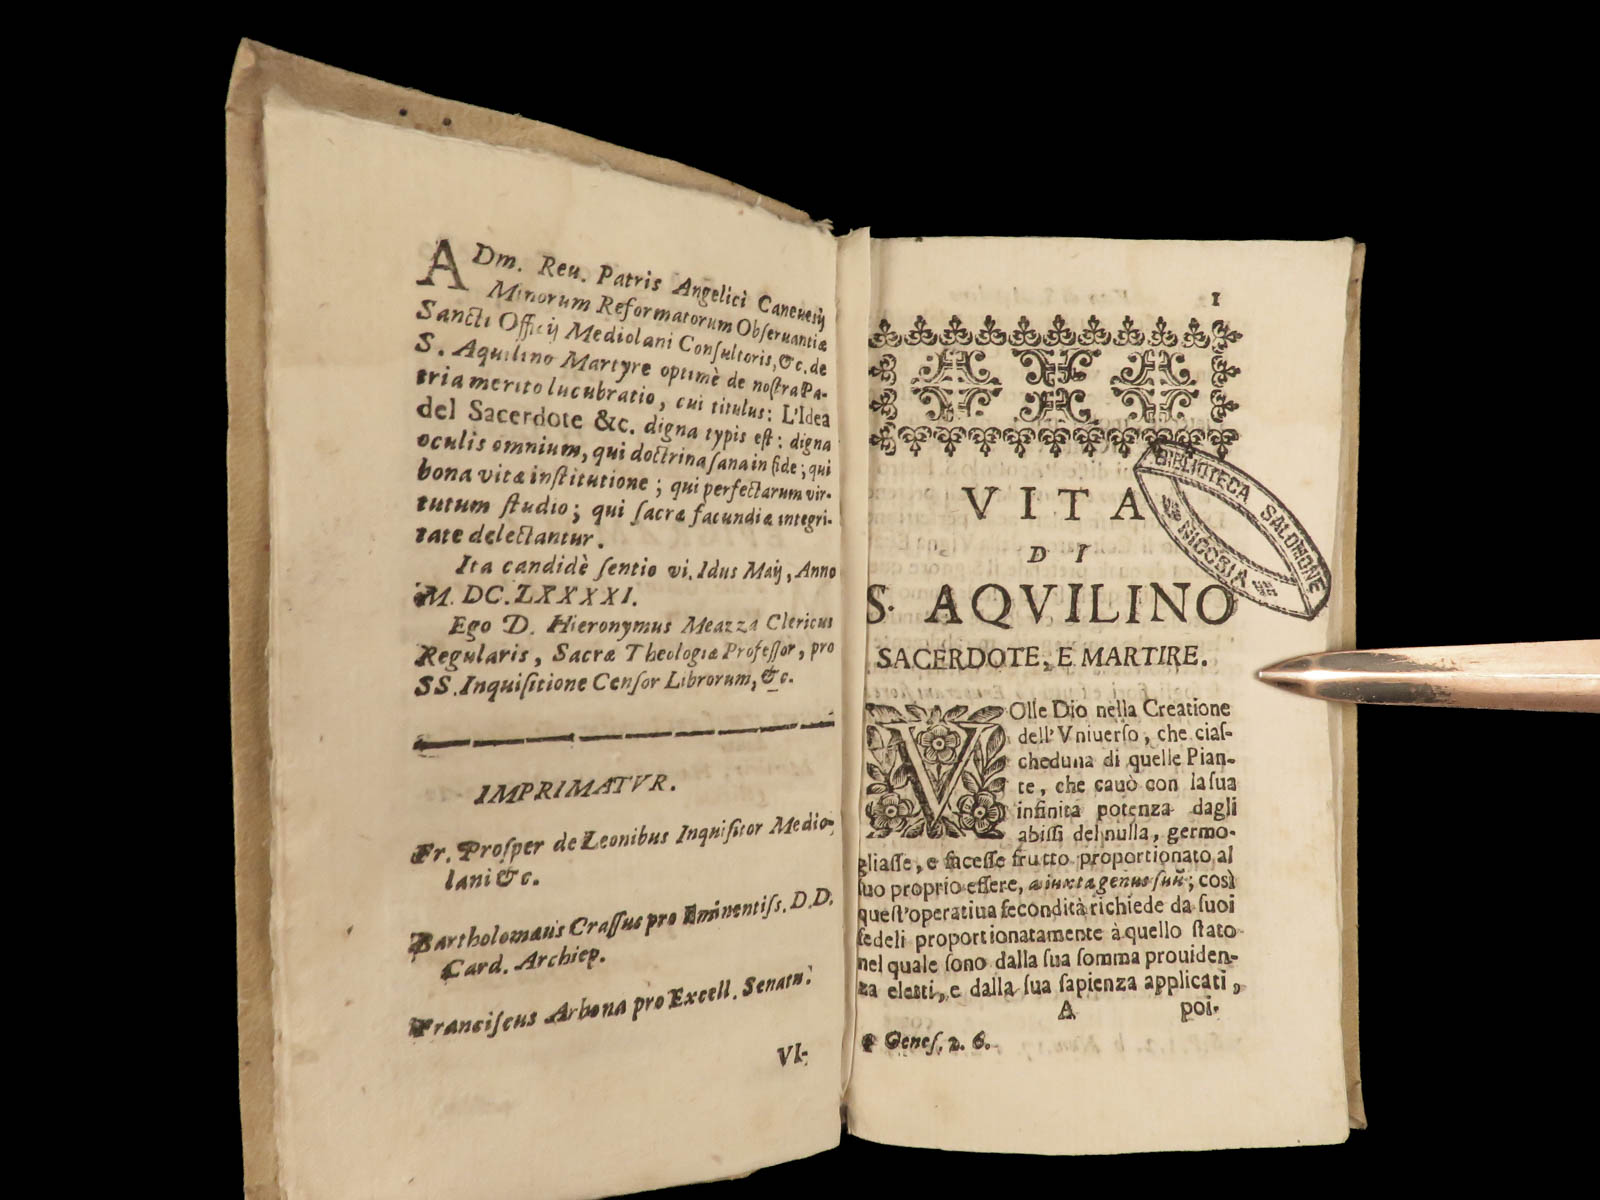 ADm. Reu. Patris Angelici Caneuesij
Minorum Reformatorum Obſeruantiæ
Sancti Officij Mediolani Conſultoris, &c. de
S. Aquilino Martyre optimè de noſtra Pa-
tria merito lucubratio, cui titulus: L'Idea
del Sacerdote &c. digna typis eſt: digna
oculis omnium, qui doctrina ſana in fide; qui
bona vitæ inſtitutione; qui perfectarum vir-
tutum ſtudio; qui ſacræ facundiæ integri-
tate delectantur.
Ita candidè ſentio vi. Idus Maij, Anno
M. DC. LXXXXI.
Ego D. Hieronymus Meazza Clericus
Regularis, Sacræ Theologiæ Profeſſor, pro
SS. Inquiſitione Cenſor Librorum, &c.
IMPRIMATVR.
Fr. Proſper de Leonibus Inquiſitor Medio-
lani &c.
Bartholomæus Craſſus pro Eminentiſs. D.D.
Card. Archiep.
Franciſcus Arbona pro Excell. Senatu.
VI-
1
VITA
DI
S. AQVILINO
SACERDOTE, E MARTIRE.
VOlle Dio nella Creatione
dell' Vniuerſo, che ciaſ-
cheduna di quelle Pian-
te, che cauò con la ſua
infinita potenza dagli
abiſſi del nulla, germo-
gliaſſe, e faceſſe frutto proportionato al
ſuo proprio eſſere, a iuxta genus ſuū; così
queſt'operatiua fecondità richiede da ſuoi
fedeli proportionatamente à quello ſtato
nel quale ſono dalla ſua ſomma prouiden-
za eletti, e dalla ſua ſapienza applicati,
A poi-
a Geneſ. 2. 6.
BIBLIOTECA SALOMONE
NICOSIA